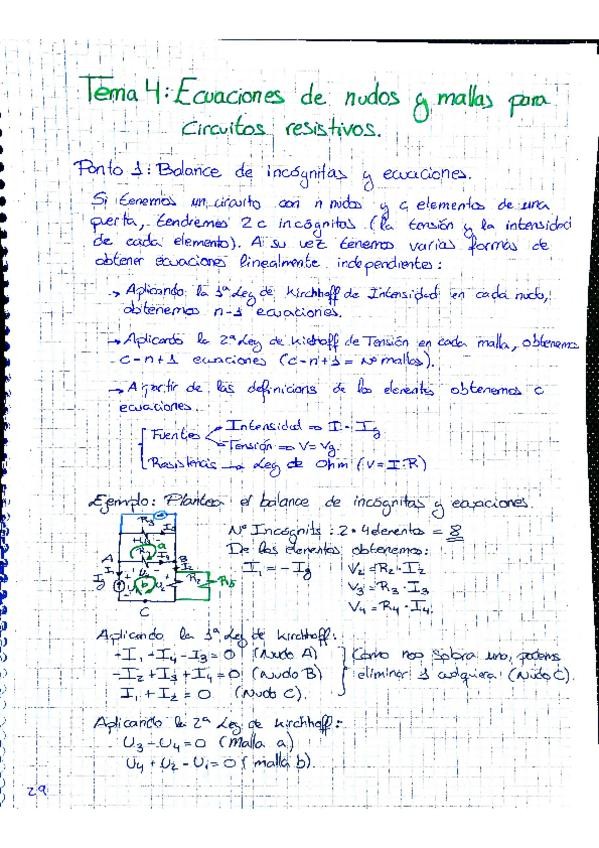 Tema 4: Ecuaciones de nudos y mallas para
circuitos resistivos.
Ponto 1: Balance de incógnitas y ecuaciones.
Si tenemos un circuito con n nudos y c elementos de una
puerta, tendremos 2c incógnitas (la tensión y la intensidad
de cada elemento). A su vez tenemos varias formas de
obtener ecuaciones linealmente independientes:
→ Aplicando la 1ª Ley de Kirchhoff de Intensidad en cada nudo,
obtenemos n-1 ecuaciones.
→ Aplicando la 2ª Ley de Kichoff de Tensión en cada malla, obtenemos
c-n+1 ecuaciones (c-n+1 = Nº mallas).
→ A partir de las definicions de los elementos obtenemos c
ecuaciones.
Fuentes
Intensidad ⇒ I = Ig
Tensión ⇒ V = Vg
Resistencias → Ley de Ohm (V=I·R)
Ejemplo: Plantea el balance de incógnitas y ecuaciones.
Nº Incógnits: 2·4 elementos = 8
De los elementos obtenemos:
I₁ = -Ig
V₂ = R₂·I₂
V₃ = R₃·I₃
V₄ = R₄·I₄
R₃
a
A
B
b
R₂
R₅
Ig
C
Aplicando la 1ª Ley de Kirchhoff:
-I₁-I₄-I₃=0 (Nudo A)
-I₂+I₃+I₄=0 (Nudo B)
I₁+I₂=0 (Nudo C).
Como nos sobra uno, podems
eliminar 1 cualquiera (Nudo C).
Aplicando la 2ª Ley de Kirchhoff:
U₃-U₄=0 (malla a)
U₄+U₂-U₁=0 (malla b).
29